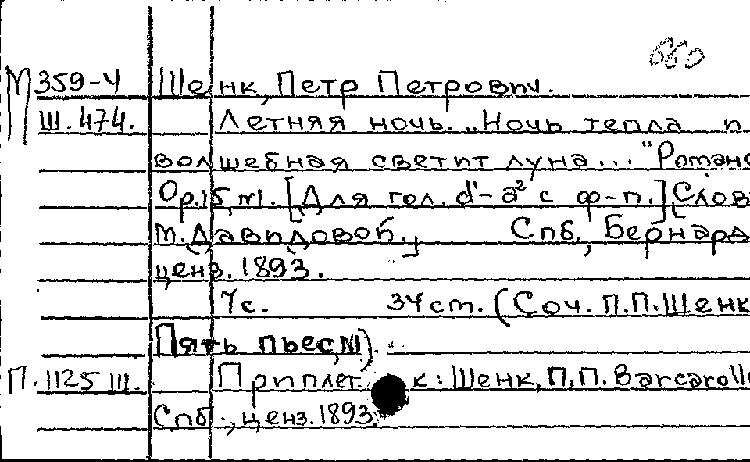 660
М 359-4 Шенк, Петр Петрович.
Ш. 474. Летняя ночь. „Ночь тепла п.
волшебная светит луна..." Романс
Op.15, №1. [Для гол. d¹-a² с ф-п.] Слов
М. Давидовой. Спб., Бернард
ценз. 1893.
7с. 34 cm. (Соч. П.П. Шенк
Пять пьес, №1).
П. 1125 Ш. Приплет. к: Шенк, П.П. Barcarolle
Спб., ценз. 1893.